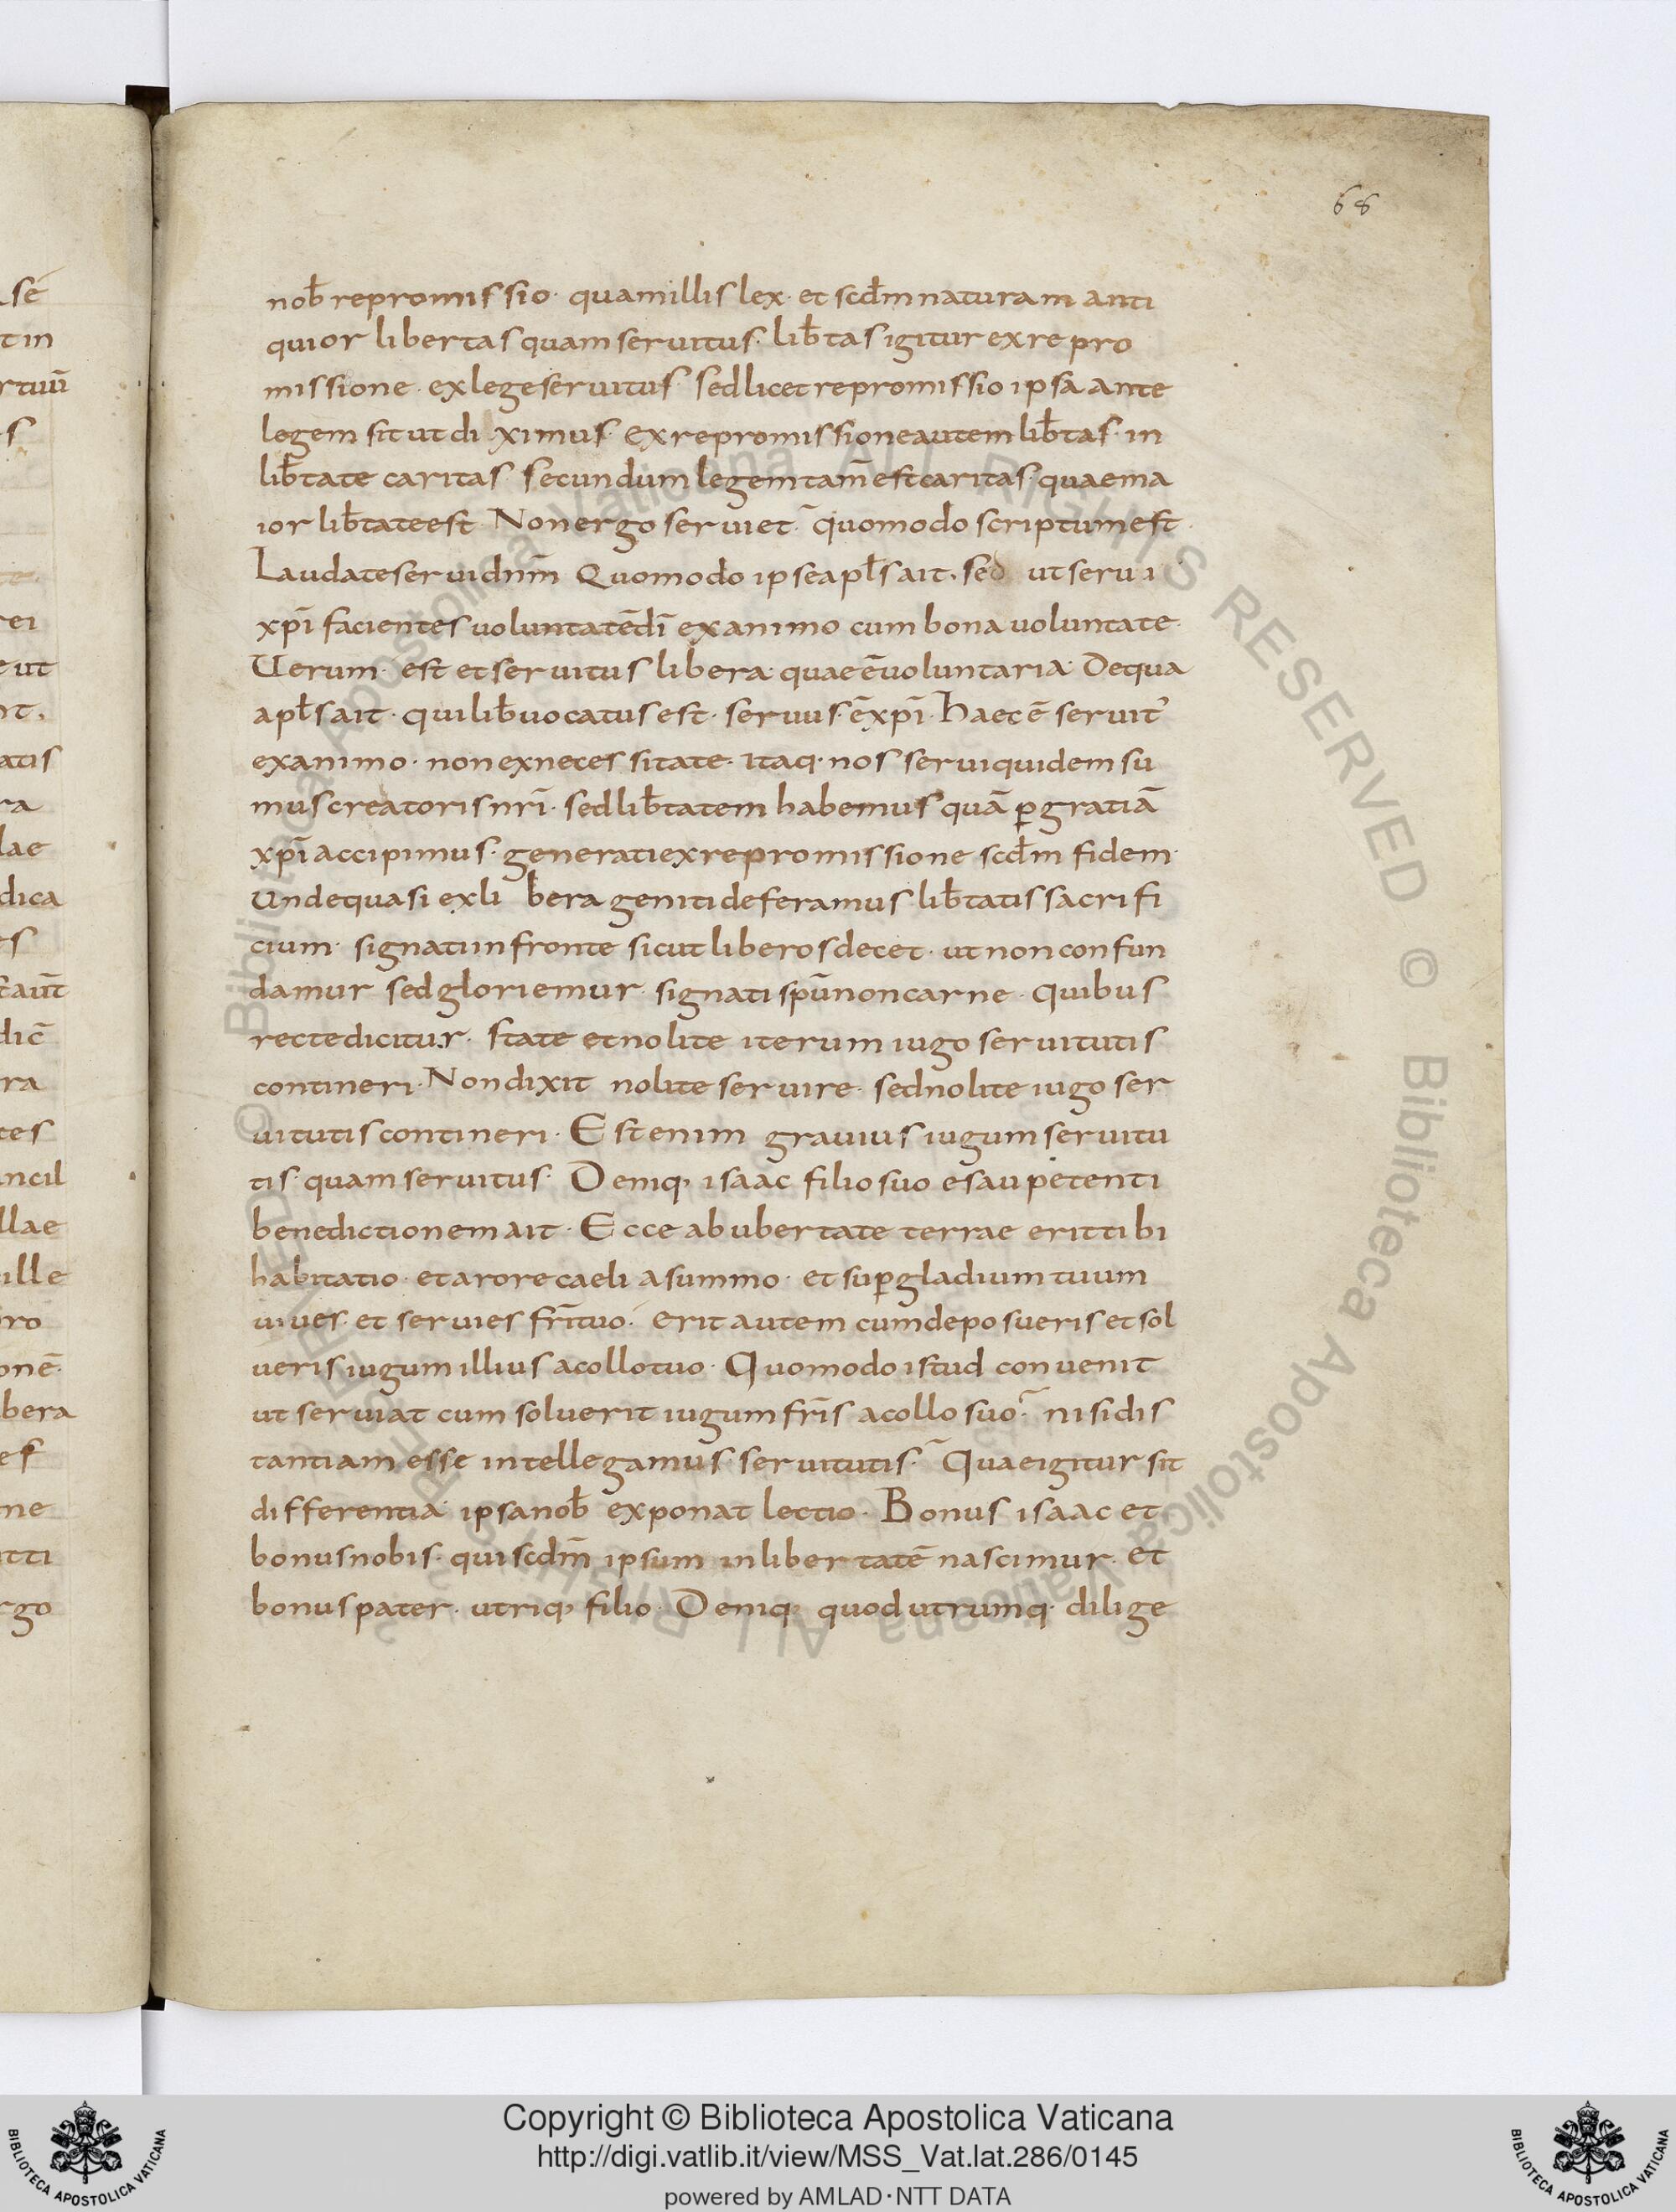 68
nob̄ repromissio· quam illis lex· et scd̄m naturam anti
quior libertas quam seruitus· lib̄tas igitur ex repro
missione· ex lege seruitus· sed licet repromissio ipsa ante
legem sit ut diximus· ex repromissione autem lib̄tas· in
lib̄tate caritas· secundum legem tam̄ est caritas· quae ma
ior lib̄tate est· Non ergo seruiet· quomodo scriptum est·
Laudate serui dn̄m Quomodo ipse apl̄s ait· sed ut serui
xp̄i facientes uoluntatē dī ex animo cum bona uoluntate·
Uerum· est et seruitus libera· quae ē uoluntaria· De qua
apl̄s ait· qui lib̄ uocatus est· seruus· ē xp̄i· haec ē seruit᾿
ex animo· non ex necessitate· Itaq· nos serui quidem su
mus creatoris nr̄i· sed lib̄tatem habemus quā p̱ gratiā
xp̄i accipimus· generati ex repromissione scd̄m fidem·
Unde quasi ex libera geniti deferamus lib̄tatis sacrifi
cium· signati in fronte sicut liberos decet· ut non confun
damur sed gloriemur· signati sp̄u non carne· Quibus
recte dicitur· state et nolite iterum iugo seruitutis
contineri· Non dixit nolite seruire· sed nolite iugo ser
uitutis contineri· Est enim grauius iugum seruitu
tis· quam seruitus· Deniq· isaac filio suo esau petenti
benedictionem ait· Ecce ab ubertate terrae erit tibi
habitatio· et a rore caeli a summo· et sup̱ gladium tuum
uiues· et seruies fr̄i tuo· erit autem cum deposueris et sol
ueris iugum illius a collo tuo· Quomodo istud conuenit
ut seruiat cum soluerit iugum fr̄is a collo suo· nisi dis
tantiam esse intellegamus· seruitutis· Quae igitur sit
differentia· ipsa nob̄ exponat lectio· Bonus isaac et
bonus nobis· qui scd̄m ipsum in libertatē nascimur· et
bonus pater· utriq· filio· Deniq· quod utrumq· dilige
Copyright © Biblioteca Apostolica Vaticana
http://digi.vatlib.it/view/MSS_Vat.lat.286/0145
powered by AMLAD·NTT DATA